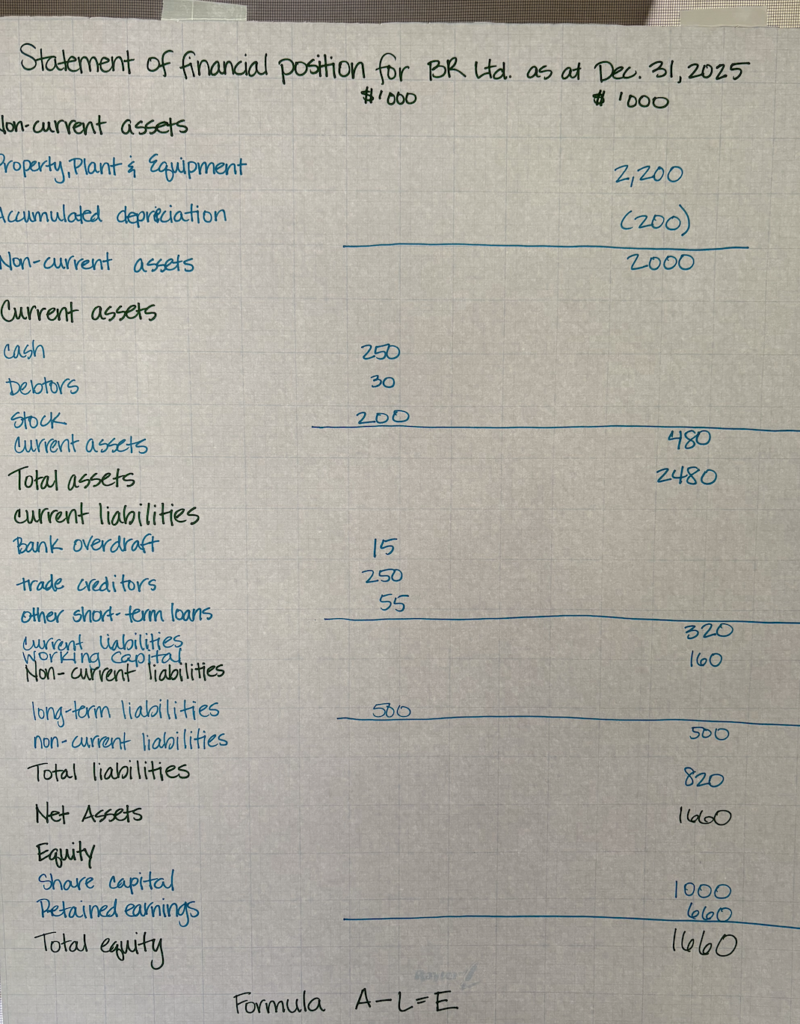 Statement of financial position for BR Ltd. as at Dec. 31, 2025
$'000 $ '000
Non-current assets
Property, Plant & Equipment 2,200
Accumulated depreciation (200)
Non-current assets 2000
Current assets
cash 250
Debtors 30
Stock 200
current assets 480
Total assets 2480
current liabilities
Bank overdraft 15
trade creditors 250
other short-term loans 55
current liabilities 320
working capital 160
Non-current liabilities
long-term liabilities 500
non-current liabilities 500
Total liabilities 820
Net Assets 1660
Equity
Share capital 1000
Retained earnings 660
Total equity 1660
Formula A-L=E